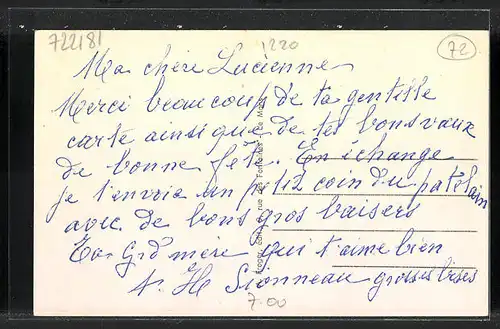 722181
1220
72
Ma chère Lucienne
Merci beaucoup de ta gentille
carte ainsi que de tes bons vœux
de bonne fête. En échange
je t'envoie un petit coin du patelain
avec de bons gros baisers
Ta Grd mère qui t'aime bien
Sionneau grosses bises
7-00
rue des Fontaines, Le Mans